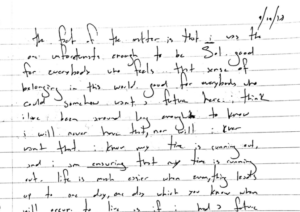 9/10/23
the fact of the matter is that i was the
unfortunate enough to be Sol. good
for everybody who feels that sense of
belonging in this world. good for everybody who
could somehow want a future here. i think
i have been around long enough to know
i will never have that, nor will i ever
want that. i know my time is running out.
and i am ensuring that my time is running
out. life is much easier when everything leads
up to one day, one day which you know when
will occur. to live as if i had a future